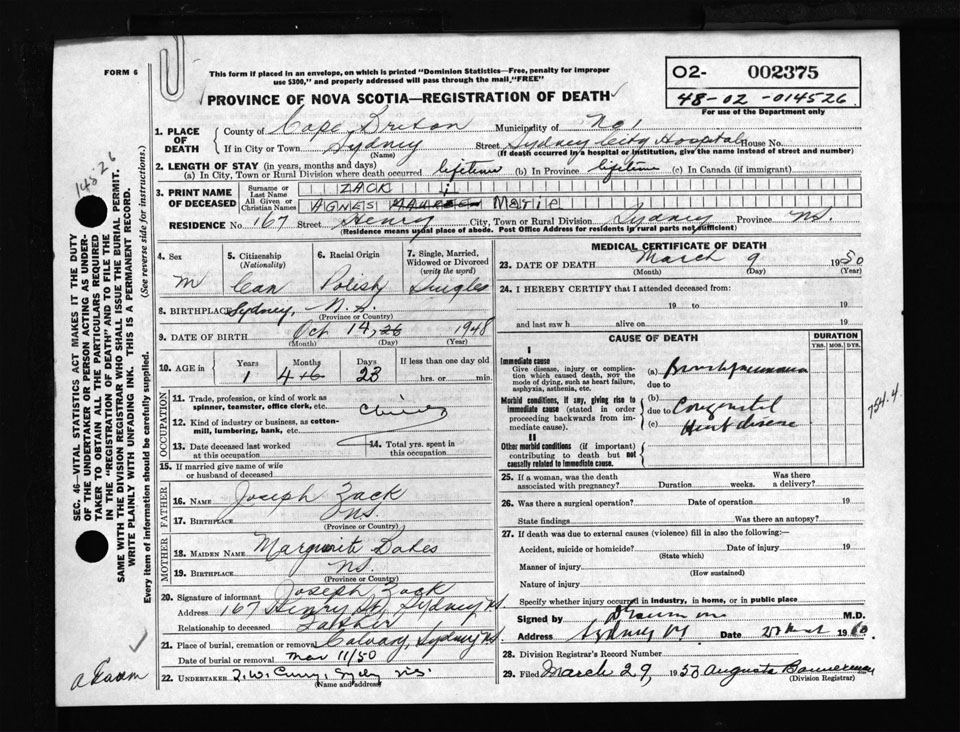 FORM 6
This form if placed in an envelope, on which is printed "Dominion Statistics—Free, penalty for improper
use $300," and properly addressed will pass through the mail "FREE"
O2- 002375
48-02-014526
For use of the Department only
PROVINCE OF NOVA SCOTIA—REGISTRATION OF DEATH
1. PLACE OF DEATH { County of Cape Breton Municipality of
If in City or Town Sydney Street Sydney City Hospital House No.
(Name) (If death occurred in a hospital or institution, give the name instead of street and number)
2. LENGTH OF STAY (in years, months and days)
(a) In City, Town or Rural Division where death occurred lifetime (b) In Province lifetime (c) In Canada (if immigrant)
3. PRINT NAME OF DECEASED { Surname or Last Name ZACK
All Given or Christian Names AGNES Marie
RESIDENCE No. 167 Street Henry City, Town or Rural Division Sydney Province N.S.
(Residence means usual place of abode. Post Office Address for residents in rural parts not sufficient)
4. Sex M
5. Citizenship (Nationality) Can
6. Racial Origin Polish
7. Single, Married, Widowed or Divorced (write the word) Single
8. BIRTHPLACE Sydney, N.S.
(Province or Country)
9. DATE OF BIRTH Oct 14, 26 1948
(Month) (Day) (Year)
10. AGE { Years 1 Months 4 16 Days 23 If less than one day old
hrs. or min.
OCCUPATION
11. Trade, profession, or kind of work as
spinner, teamster, office clerk, etc.
12. Kind of industry or business, as cotton-
mill, lumbering, bank, etc.
13. Date deceased last worked at this occupation
14. Total yrs. spent in this occupation
15. If married give name of wife
or husband of deceased
FATHER
16. NAME Joseph Zack
17. BIRTHPLACE N.S.
(Province or Country)
MOTHER
18. MAIDEN NAME Marguerite
19. BIRTHPLACE N.S.
(Province or Country)
20. Signature of informant Joseph Zack
Address 167 Henry St, Sydney N.S.
Relationship to deceased Father
21. Place of burial, cremation or removal Calvary, Sydney N.S.
Date of burial or removal Mar 11/50
22. UNDERTAKER T. W. Curry, Sydney N.S.
(Name and address)
MEDICAL CERTIFICATE OF DEATH
23. DATE OF DEATH March 9 1950
(Month) (Day) (Year)
24. I HEREBY CERTIFY that I attended deceased from
19 to 19
and last saw h alive on 19
CAUSE OF DEATH DURATION
YRS. MOS. DYS.
I
Immediate cause
Give disease, injury or complica-
tion which caused death, NOT the
mode of dying, such as heart failure,
asphyxia, asthenia, etc.
(a) Bronchopneumonia
due to
Morbid conditions, if any, giving rise to
immediate cause (stated in order
proceeding backwards from im-
mediate cause).
(b)
due to Congenital
(c) Heart disease
754.4
II
Other morbid conditions (if important)
contributing to death but not
causally related to immediate cause.
25. If a woman, was the death associated with pregnancy? Duration weeks. Was there a delivery?
26. Was there a surgical operation? Date of operation 19
State findings Was there an autopsy?
27. If death was due to external causes (violence) fill in also the following:—
Accident, suicide or homicide? Date of injury 19
(State which)
Manner of injury
(How sustained)
Nature of injury
Specify whether injury occurred in industry, in home, or in public place
Signed by M.D.
Address Sydney Date
28. Division Registrar's Record Number
29. Filed March 29, 1950 Augusta Bannerman
(Division Registrar)
SEC. 46—VITAL STATISTICS ACT MAKES IT THE DUTY
OF THE UNDERTAKER OR PERSON ACTING AS UNDER-
TAKER TO OBTAIN ALL THE PARTICULARS REQUIRED
IN THE "REGISTRATION OF DEATH" AND TO FILE THE
SAME WITH THE DIVISION REGISTRAR WHO SHALL ISSUE THE BURIAL PERMIT.
WRITE PLAINLY WITH UNFADING INK. THIS IS A PERMANENT RECORD.
Every item of information should be carefully supplied. (See reverse side for instructions.)
14526